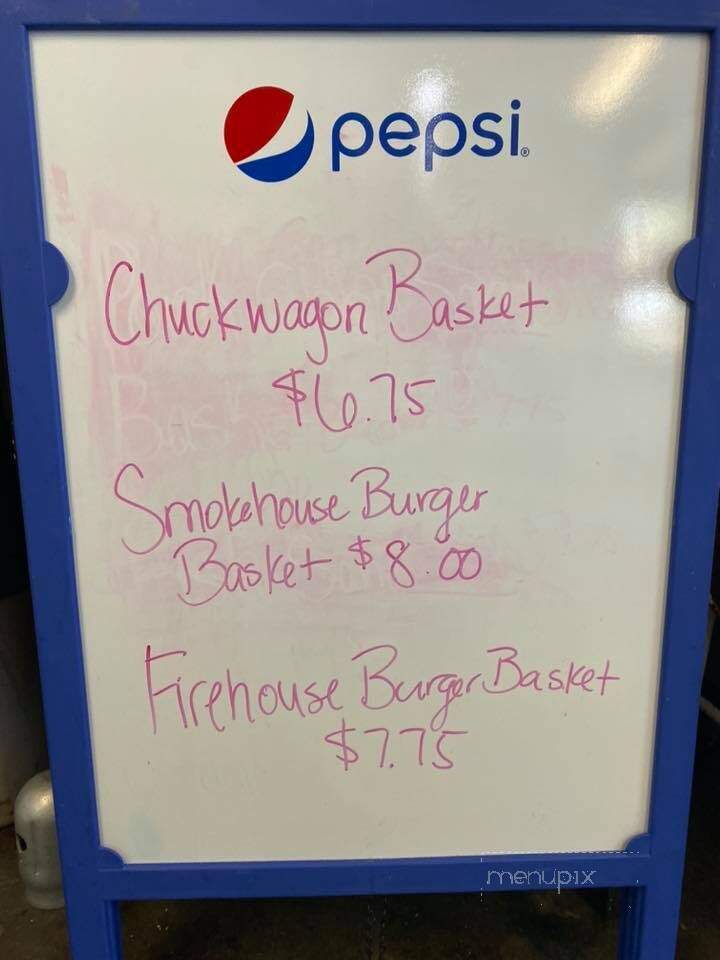 pepsi
Chuckwagon Basket
$6.75
Smokehouse Burger
Basket $8.00
Firehouse Burger Basket
$7.75
menupix